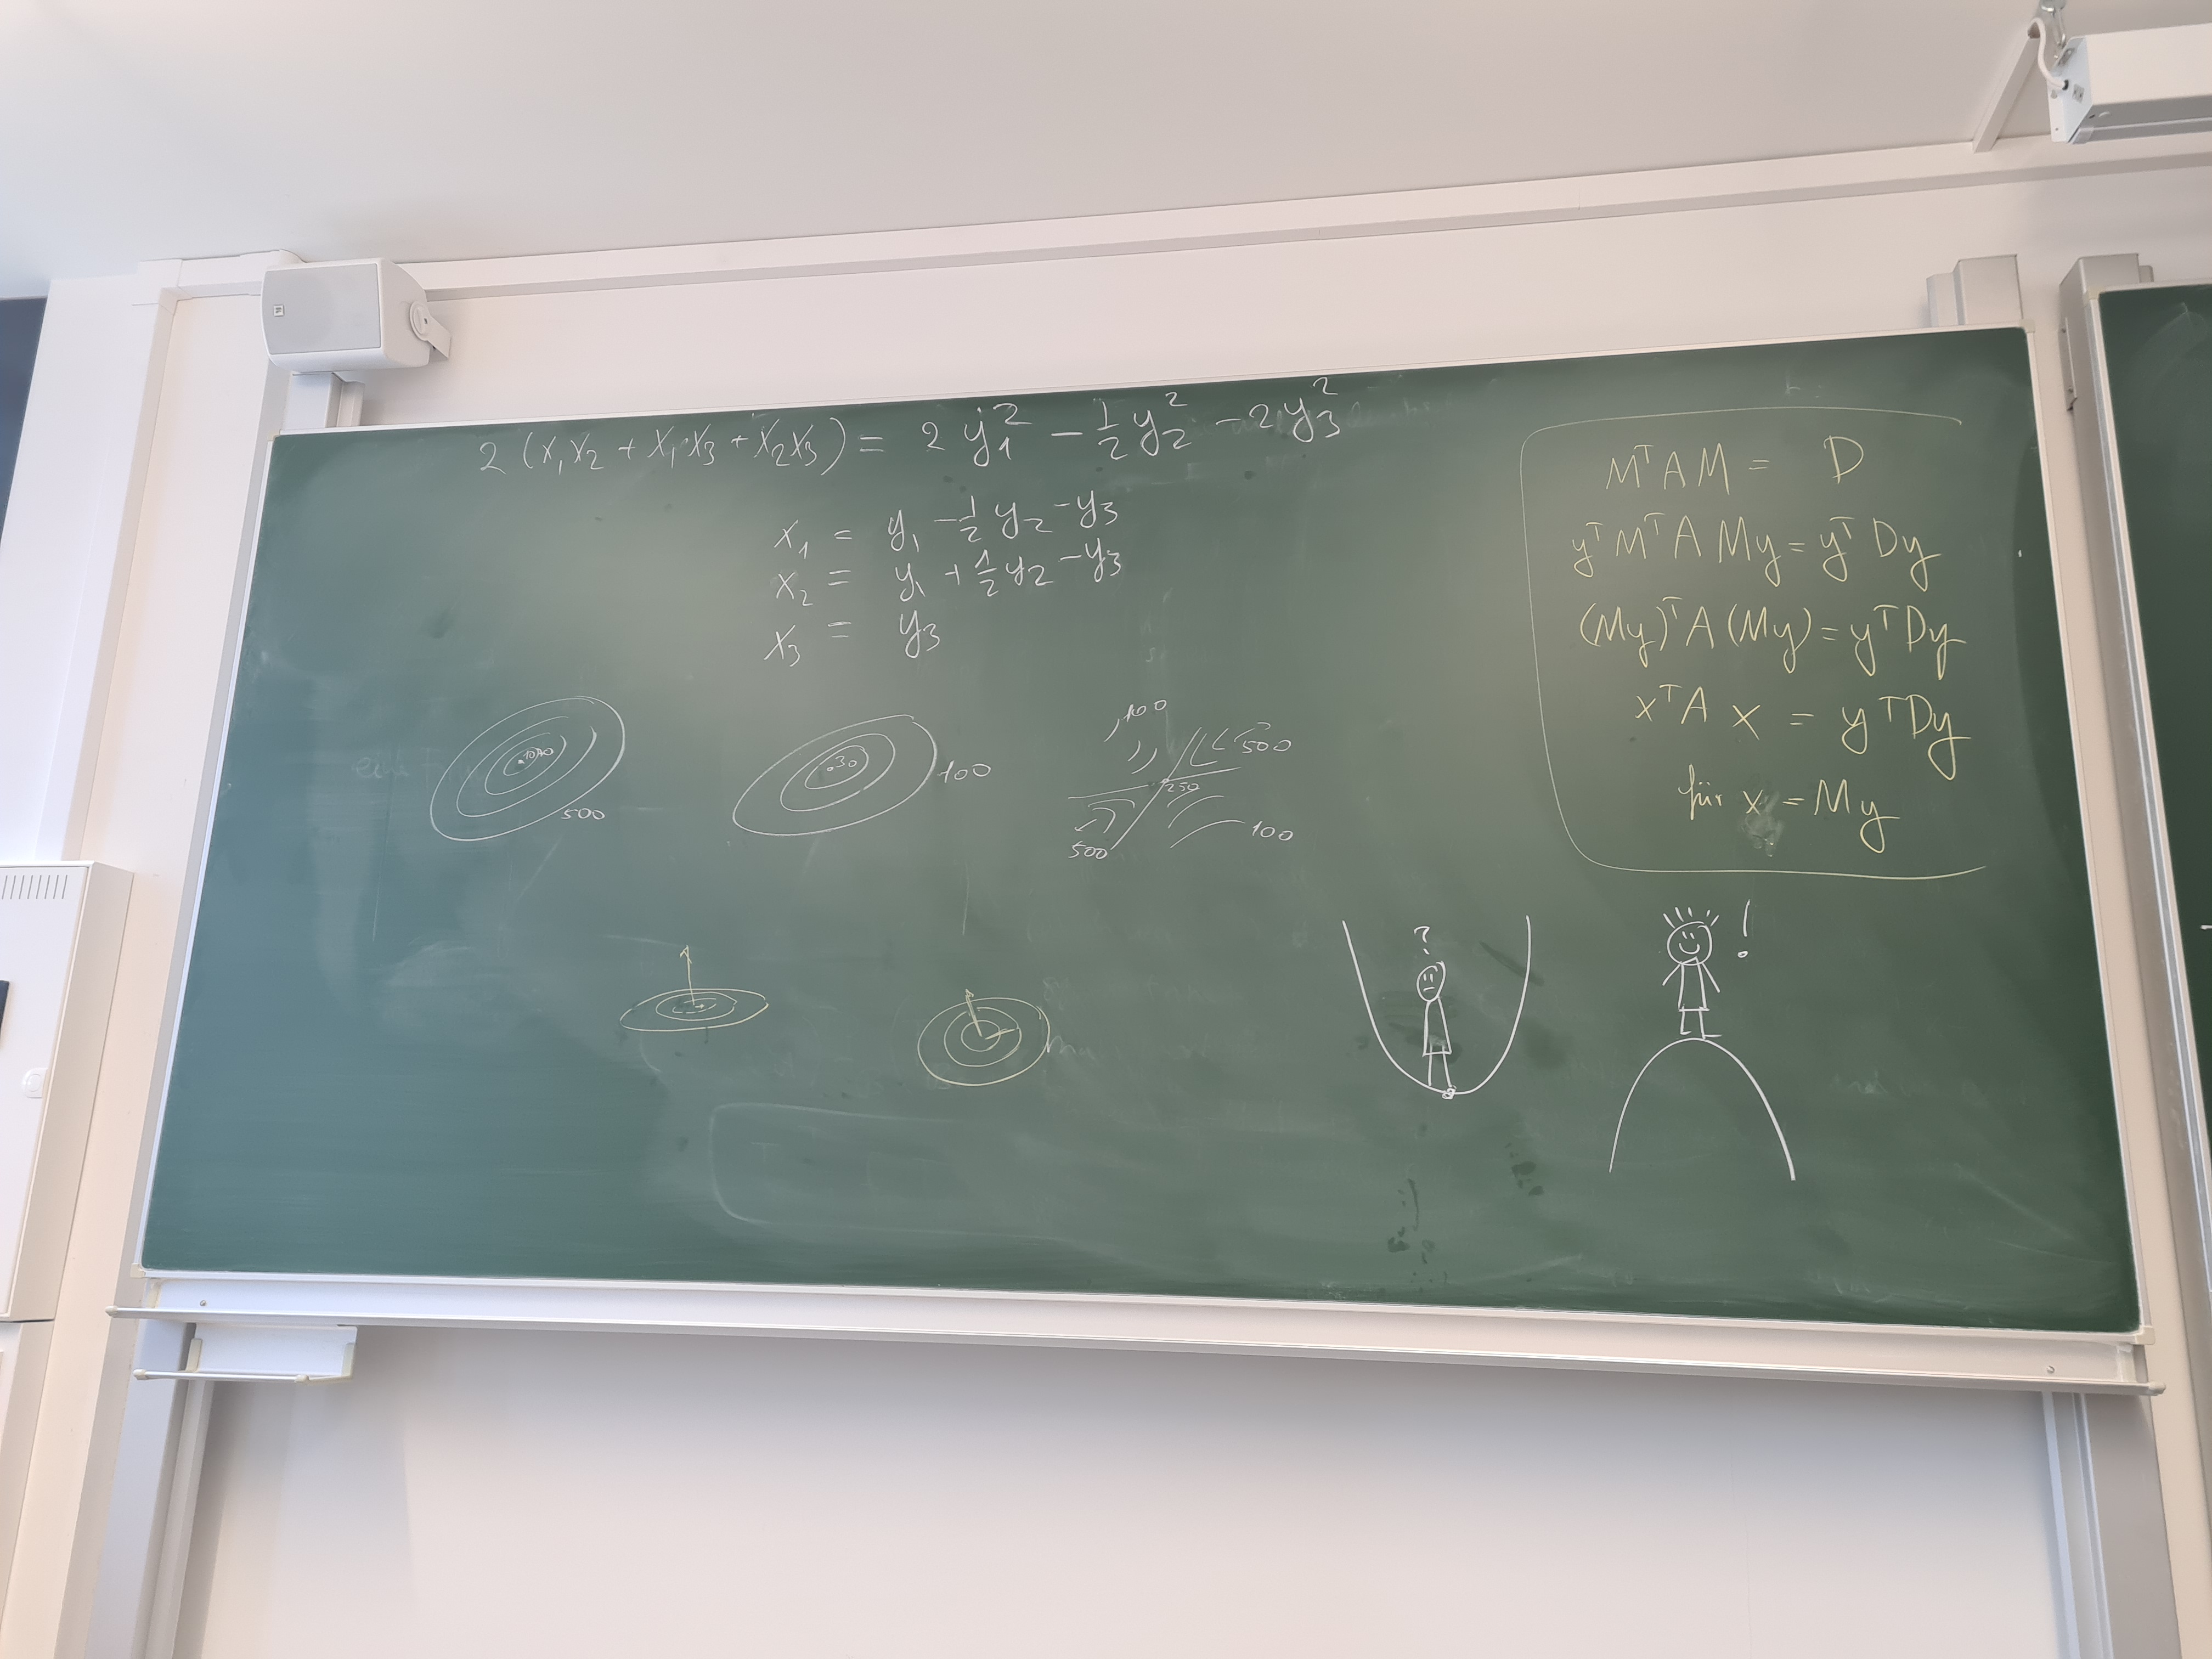 2 (x₁x₂ + x₁x₃ + x₂x₃) = 2 y₁² - 1/2 y₂² - 2 y₃²
x₁ = y₁ - 1/2 y₂ - y₃
x₂ = y₁ + 1/2 y₂ - y₃
x₃ = y₃
500
30
100
100
500
250
500
100
MᵀAM = D
yᵀMᵀA My = yᵀDy
(My)ᵀA (My) = yᵀDy
xᵀA x = yᵀDy
für x = My
?
!